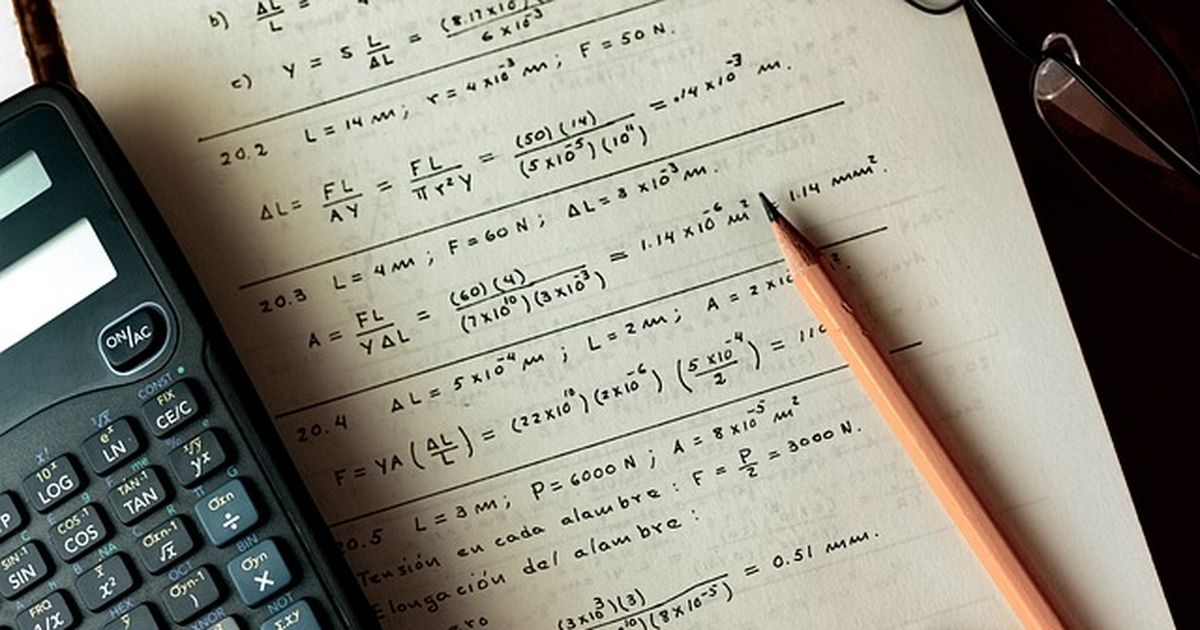 b) ΔL/L =
c) Y = S L/ΔL = (8.17×10 / 6×10⁻³
20.2 L = 14 m ; r = 4×10⁻³ m ; F = 50 N.
ΔL = FL/AY = FL/πr²Y = (50)(14)/(5×10⁻⁵)(10¹¹) = .14×10⁻³ m.
20.3 L = 4 m ; F = 60 N ; ΔL = 3×10⁻³ m.
A = FL/YΔL = (60)(4)/(7×10¹⁰)(3×10⁻³) = 1.14×10⁻⁶ m² = 1.14 mm².
20.4 ΔL = 5×10⁻⁴ m ; L = 2 m ; A = 2×10
F = YA (ΔL/L) = (22×10¹⁰)(2×10⁻⁶) (5×10⁻⁴/2) = 110
20.5 L = 3 m ; P = 6000 N ; A = 8×10⁻⁵ m²
Tensión en cada alambre : F = P/2 = 3000 N.
Elongación del alambre :
(3×10³)(3)/(8×10⁻⁵) = 0.51 mm.
ON/AC
CONST
FIX
CE/C
eˣ
LN
10ˣ
LOG
TAN⁻¹
TAN
yˣ
COS⁻¹
COS
SIN⁻¹
SIN
σxn
÷
σxn-1
√x
x̄
x²
OCT
σyn-1
)
BIN
σyn
×
FRQ
1/x
HEX
XNOR
NOT